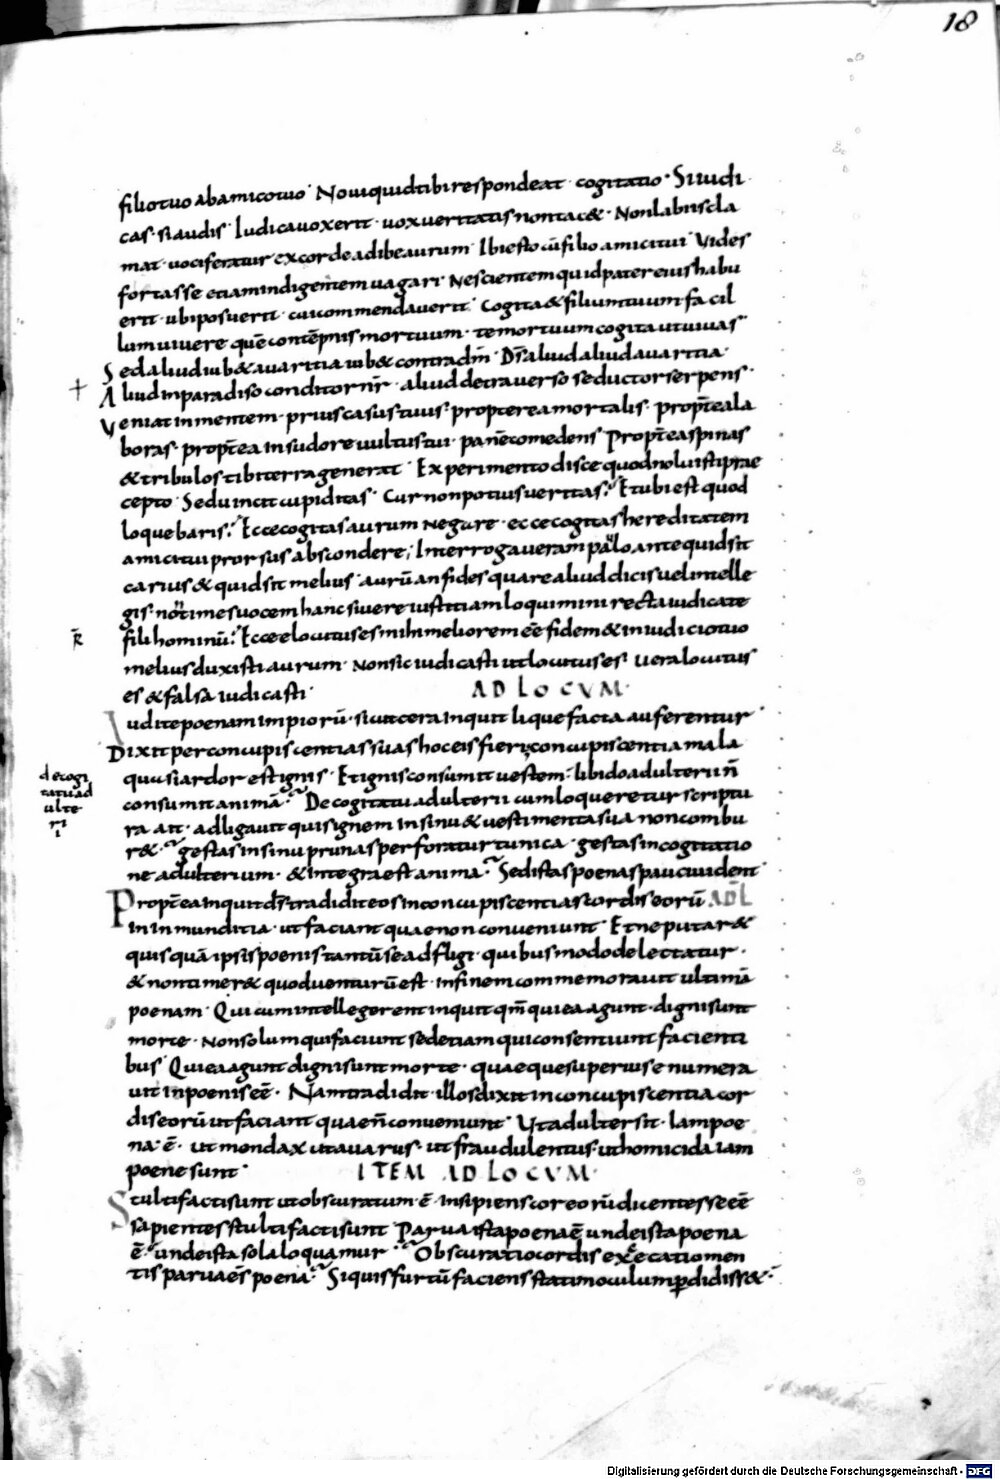 18
filio tuo ab amico tuo · Noui quid tibi respondeat cogitatio · Si iudi
cas · si audis · Iudica uox erit · uox ueritatis non tac& · Non labiis cla
mat · uociferatur ex corde adibe aurum · Ibi esto cū filio amici tui · Vides
fortasse etiam indigentem uagari · Nescientem quid pater eius habu
erit · ubi posuerit · cui commendauerit · Cogita & filium tuum facil
lum uiuere quē contēpnis mortuum · te mortuum cogita ut uiuas
Sed aliud iub& auaritia iub& contradm̄ · Ds̄ aliud aliud auaritia ·
Aliud in paradiso conditor nr̄ · aliud de trauerso seductor serpens ·
Veniat in mentem · prius casus tuus · propterea mortalis · propt̄ea la
boras · propt̄ea in sudore uultus tui · panē comedens · Propt̄ea spinas
& tribulos tibi terra generat · Experimento disce quod noluisti prae
cepto · Sed uincit cupiditas · Cur non potius ueritas? Et ubi est quod
loquebaris? Ecce cogitas aurum negare · ecce cogitas hereditatem
amici tui prorsus abscondere; Interrogaueram palo ante quid sit
carius & quid sit melius · aurū an fides quare aliud dicis uel intelle
gis · non times uocem hanc si uere iustitiam loquimini recta iudicate
R̄
fili hominū? Ecce elocutus es mihi meliorem eē fidem & in iudicio tuo
melius duxisti aurum · Non sic iudicasti ut locutus es · uera locutus
es & falsa iudicasti · AD LOCVM ·
Audite poenam impiorū · sicut cera inquit liquefacta auferentur
Dixit per concupiscentias suas hoc eis fieri; concupiscentia mala
quasi ardor est ignis · Et ignis consumit uestem · libido adulterii n̄
de cogi
tatu ad
ulte
ri
i
consumit animā? De cogitatu adulterii cum loqueretur scriptu
ra ait · adligauit quis ignem in sinu & uestimenta sua non combu
r&? gestas in sinu prunas perforatur tunica · gestas in cogitatio
ne adulterium · & integra est anima? Sed istas poenas pauci uident
Propt̄ea inquit ds̄ tradidit eos in concupiscentias cordis eorū AD L
in inmunditia · ut faciant quae non conueniunt · Et ne putar&
quisquā ipsis poenis tantū se adfligi · quibus modo delectatur ·
& non timer& quod uenturū est · in finem commemorauit ultimā
poenam · Qui cum intellegerent inquit qm̄ qui ea agunt · digni sunt
morte · non solum qui faciunt sed etiam qui consentiunt facienti
bus · Qui ea agunt digni sunt morte · quaeque superius enumera
uit in poenis eē · Nam tradidit · illos dixit in concupiscentia cor
dis eorū ut faciant quae n̄ conueniunt · Vt adulter sit · iam poe
na · ē · ut mondax ut auarus · ut fraudulentus · ut homicida iam
poene sunt · ITEM AD LOCVM ·
Stulti facti sunt ut obscuratum · ē · insipiens cor eorū dicentes se eē
sapientes stulti facti sunt Parua ista poena ē unde ista poena
ē? unde ista sola loquamur? Obscuratio cordis excecatio men
tis parua ē s poena? Si quis furtū faciens statim oculum pdidiss& ·
Digitalisierung gefördert durch die Deutsche Forschungsgemeinschaft - DFG